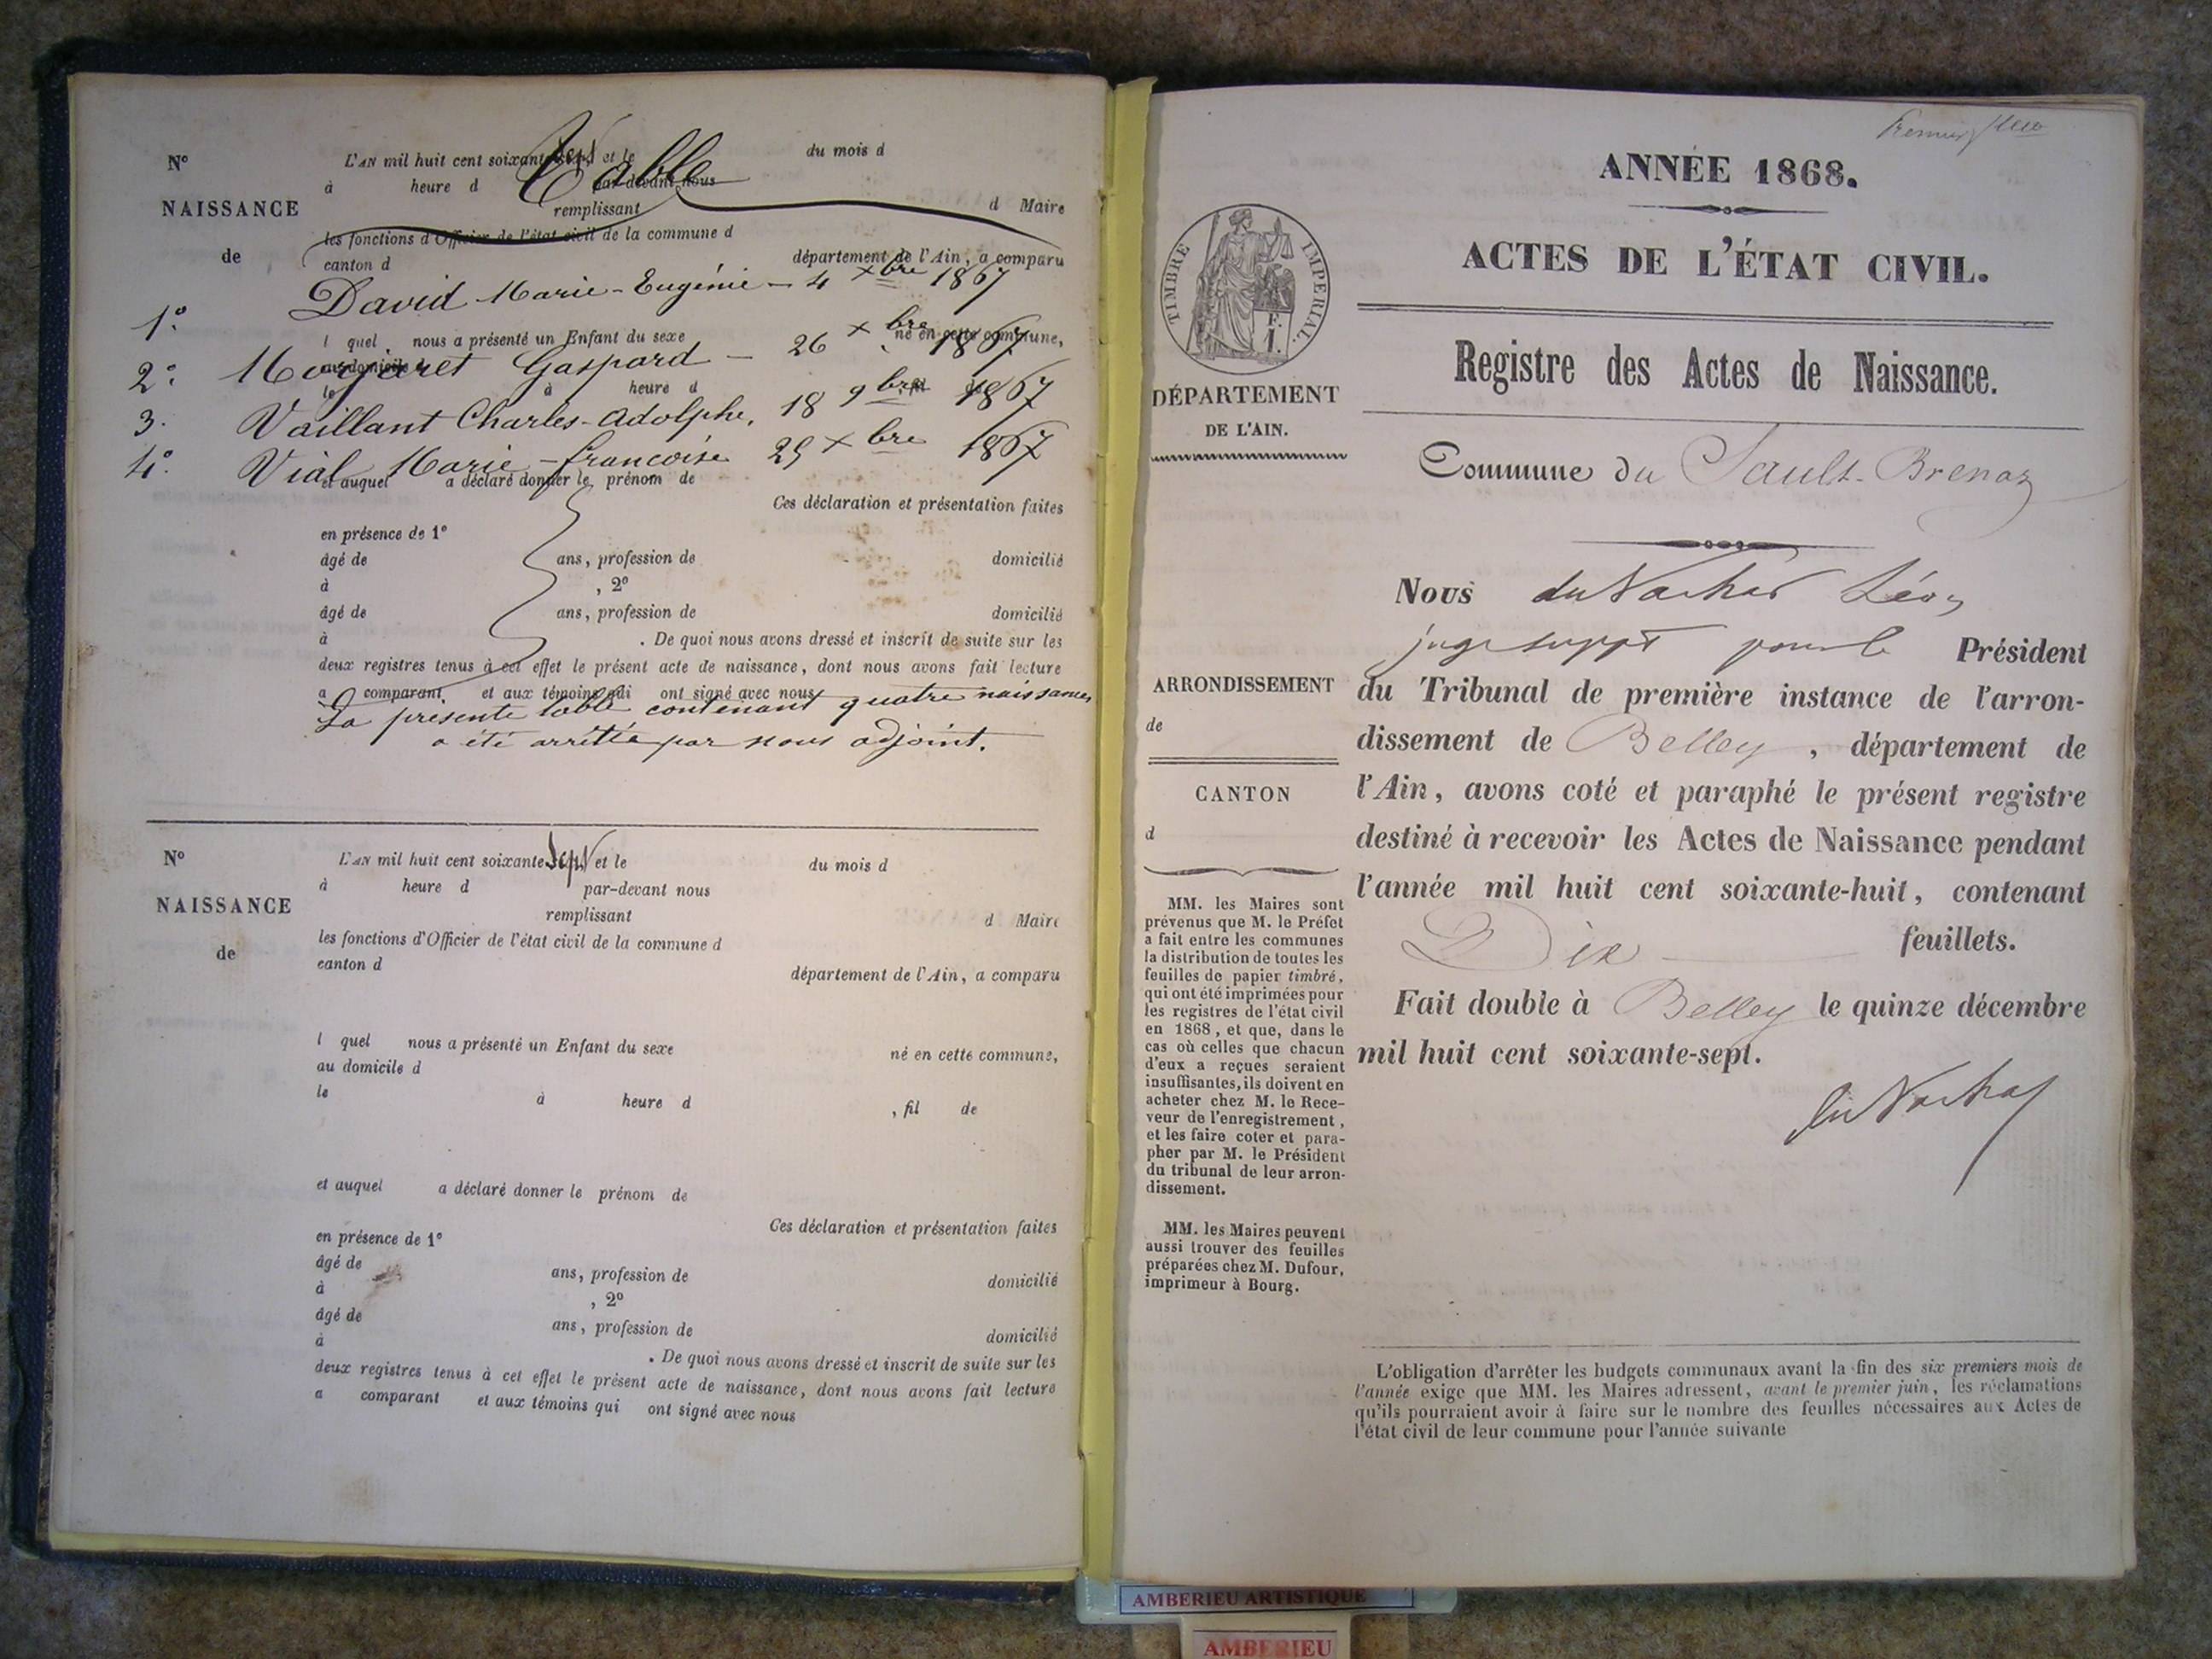 Table
N° L'AN mil huit cent soixante sept et le du mois d
à heure d par-devant nous
NAISSANCE remplissant d Maire
les fonctions d'Officier de l'état civil de la commune d
de canton d département de l'Ain, a comparu
1° David Marie-Eugénie — 4 Xbre 1867
l quel nous a présenté un Enfant du sexe né en cette commune,
au domicile d
2° Mogaret Gaspard — 26 Xbre 1867
le à heure d
3° Vaillant Charles-Adolphe. 18 9bre 1867
4° Vial Marie-françoise 25 Xbre 1867
et auquel a déclaré donner le prénom de
Ces déclaration et présentation faites
en présence de 1°
âgé de ans, profession de domicilié
à , 2°
âgé de ans, profession de domicilié
à . De quoi nous avons dressé et inscrit de suite sur les
deux registres tenus à cet effet le présent acte de naissance, dont nous avons fait lecture
a comparant et aux témoins qui ont signé avec nous
La présente table contenant quatre naissances
a été arrêtée par nous adjoint.
N° L'AN mil huit cent soixante sept et le du mois d
à heure d par-devant nous
NAISSANCE remplissant d Maire
les fonctions d'Officier de l'état civil de la commune d
de canton d département de l'Ain, a comparu
l quel nous a présenté un Enfant du sexe né en cette commune,
au domicile d
le à heure d , fil de
et auquel a déclaré donner le prénom de
Ces déclaration et présentation faites
en présence de 1°
âgé de ans, profession de domicilié
à , 2°
âgé de ans, profession de domicilié
à . De quoi nous avons dressé et inscrit de suite sur les
deux registres tenus à cet effet le présent acte de naissance, dont nous avons fait lecture
a comparant et aux témoins qui ont signé avec nous
ANNÉE 1868.
ACTES DE L'ÉTAT CIVIL.
Registre des Actes de Naissance.
Commune du Sault-Brenaz
TIMBRE IMPERIAL.
F.
1.
DÉPARTEMENT
DE L'AIN.
ARRONDISSEMENT
de
CANTON
d
MM. les Maires sont
prévenus que M. le Préfet
a fait entre les communes
la distribution de toutes les
feuilles de papier timbré,
qui ont été imprimées pour
les registres de l'état civil
en 1868, et que, dans le
cas où celles que chacun
d'eux a reçues seraient
insuffisantes, ils doivent en
acheter chez M. le Rece-
veur de l'enregistrement,
et les faire coter et para-
pher par M. le Président
du tribunal de leur arron-
dissement.
MM. les Maires peuvent
aussi trouver des feuilles
préparées chez M. Dufour,
imprimeur à Bourg.
Nous Léon
juge suppt pour le Président
du Tribunal de première instance de l'arron-
dissement de Belley, département de
l'Ain, avons coté et paraphé le présent registre
destiné à recevoir les Actes de Naissance pendant
l'année mil huit cent soixante-huit, contenant
Dix feuillets.
Fait double à Belley le quinze décembre
mil huit cent soixante-sept.
L'obligation d'arrêter les budgets communaux avant la fin des six premiers mois de
l'année exige que MM. les Maires adressent, avant le premier juin, les réclamations
qu'ils pourraient avoir à faire sur le nombre des feuilles nécessaires aux Actes de
l'état civil de leur commune pour l'année suivante
AMBERIEU ARTISTIQUE
AMBERIEU